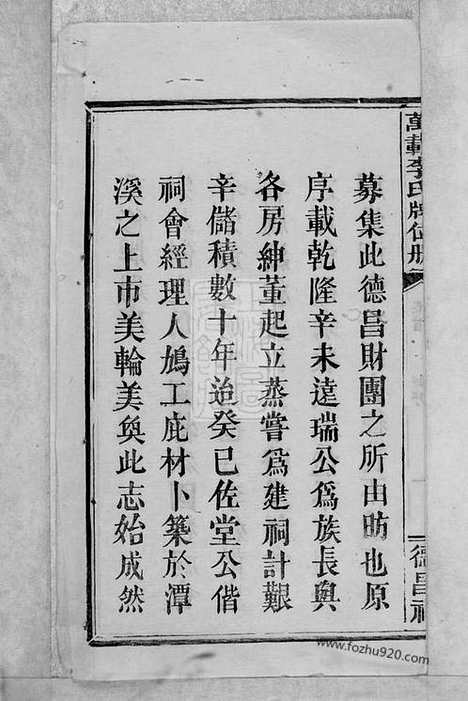 萬載李氏牌位册
德昌祠
募集此德昌財團之所由昉也原
序載乾隆辛未達瑞公爲族長與
各房紳董起立蒸嘗爲建祠計艱
辛儲積數十年迨癸巳佐堂公偕
祠會經理人鳩工庇材卜築於潭
溪之上市美輪美奐此志始成然
www.fozhu920.com